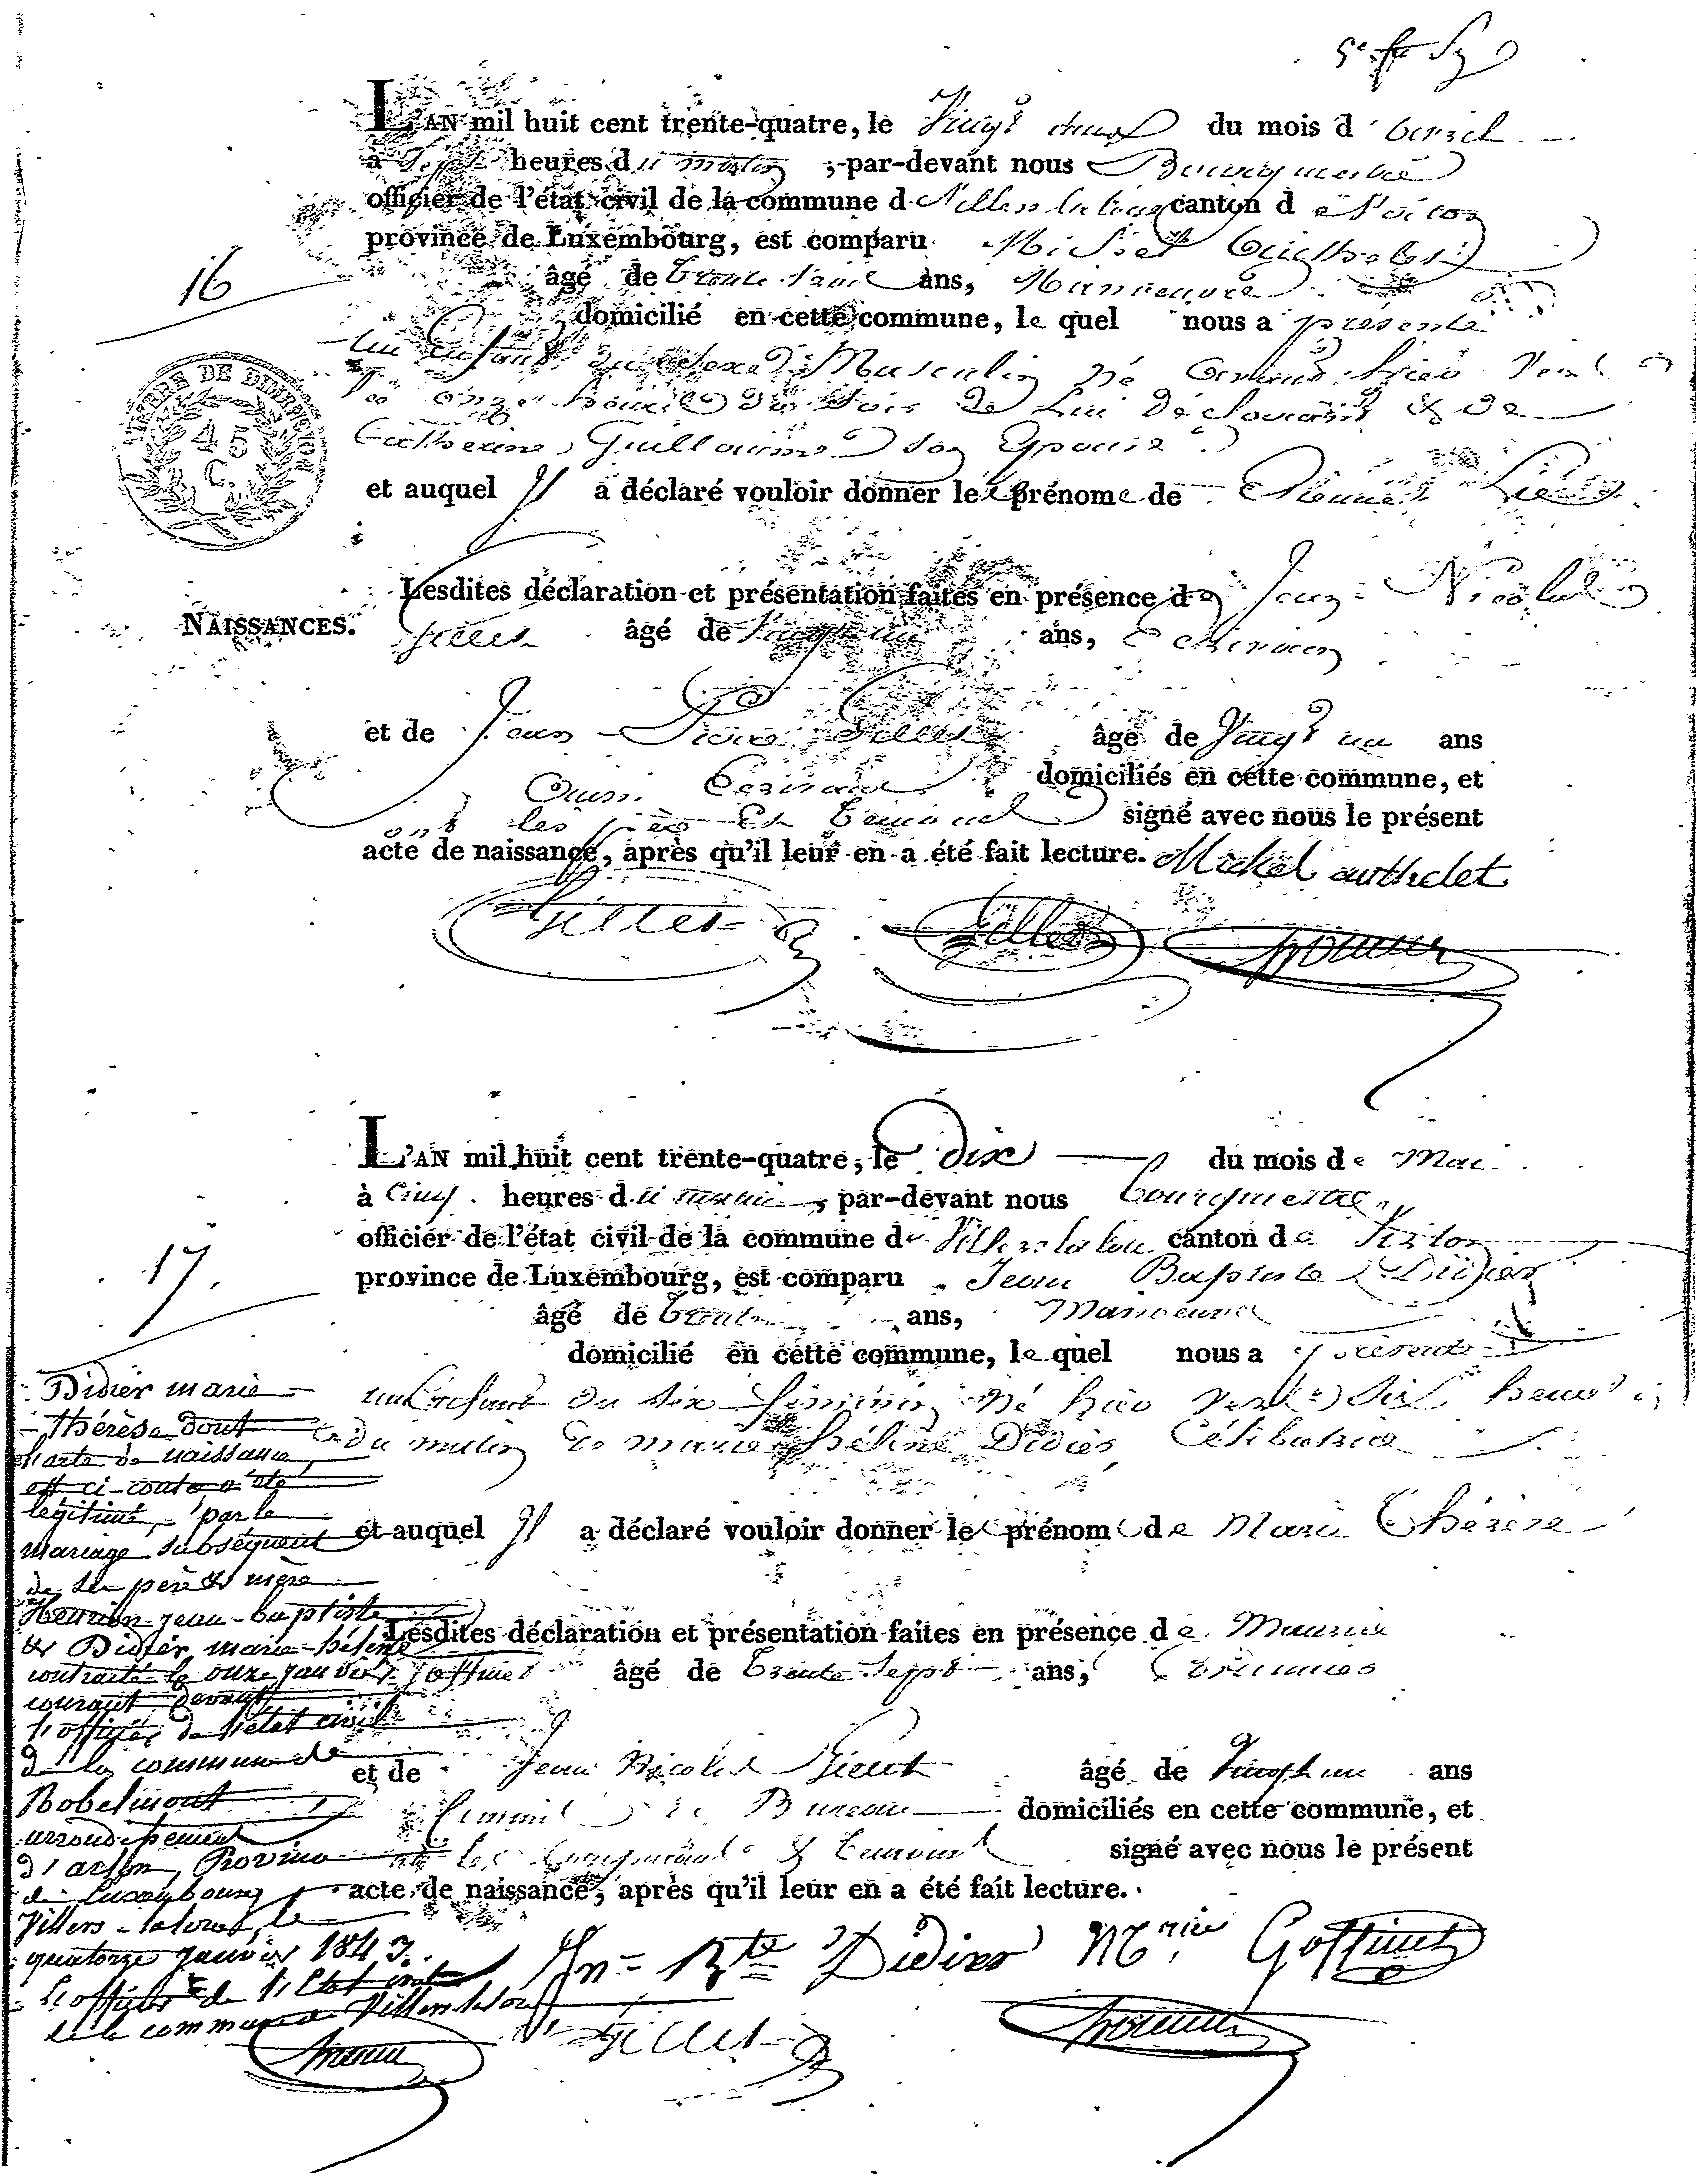 L'AN mil huit cent trente-quatre, le Vingt deux du mois d'avril
à Sept heures du matin, par-devant nous Bourgmestre
officier de l'état civil de la commune de Villers la loue canton de Virton
province de Luxembourg, est comparu Michel Authelet
16
âgé de trente ans, Manoeuvre
domicilié en cette commune, lequel nous a présenté
un enfant du sexe Masculin né avant hier vers
les onze heures du soir de lui déclarant & de
TIMBRE DE DIMENSION
45
C.
Catherine Guillaume son Epouse
et auquel Il a déclaré vouloir donner le prénom de Pierre
Lesdites déclaration et présentation faites en présence de Jean Nicolas
NAISSANCES.
Gillet âgé de Vingt un ans, Ecrivain
et de Jean Pierre Gillet âgé de Vingt un ans
Aussi Ecrivain domiciliés en cette commune, et
ont les père et témoins signé avec nous le présent
acte de naissance, après qu'il leur en a été fait lecture. Michel authelet
Gillet Gillet
L'AN mil huit cent trente-quatre, le dix du mois de Mai
à Cinq heures du matin, par-devant nous bourgmestre
officier de l'état civil de la commune de Villers la loue canton de Virton
17.
province de Luxembourg, est comparu Jean Baptiste Didier
âgé de trente ans, Manoeuvre
domicilié en cette commune, lequel nous a présenté
un Enfant du sexe féminin né hier vers dix heures
du matin de marie hélène Didier Célibatrice
et auquel Il a déclaré vouloir donner le prénom de Marie Thérèse
Lesdites déclaration et présentation faites en présence de Maurice
Goffinet âgé de trente sept ans,
et de Jean Nicolas Gillet âgé de Vingt un ans
Commis de Bureau domiciliés en cette commune, et
ont les comparant & témoins signé avec nous le présent
acte de naissance, après qu'il leur en a été fait lecture.
Jn = Bte Didier Mrice Goffinet
Gillet
Didier marie
thérèse dont
l'acte de naissance
est ci-contre a été
légitimé, par le
mariage subséquent
de ses père & mère
Henrion jean-baptiste
& Didier marie-hélène
contracté le onze janvier
courant devant
l'officier de l'état civil
de la commune de
Robelmont
arrondissement
d'arlon, Province
de Luxembourg
Villers-la-loue, le
quatorze janvier 1843.
L'officier de l'Etat civil
de la commune de Villers la loue